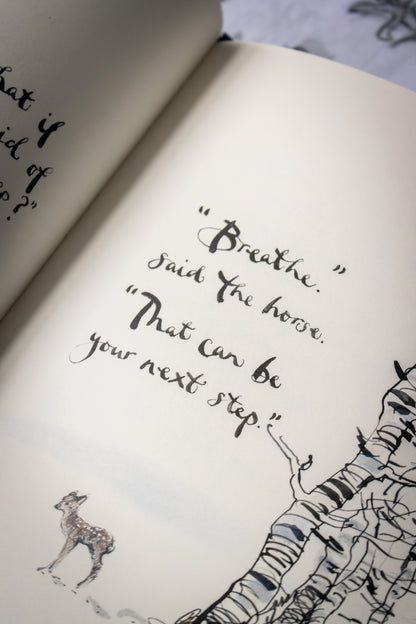 hat if
id of
p?"
"Breathe."
said the horse.
"That can be
your next step."